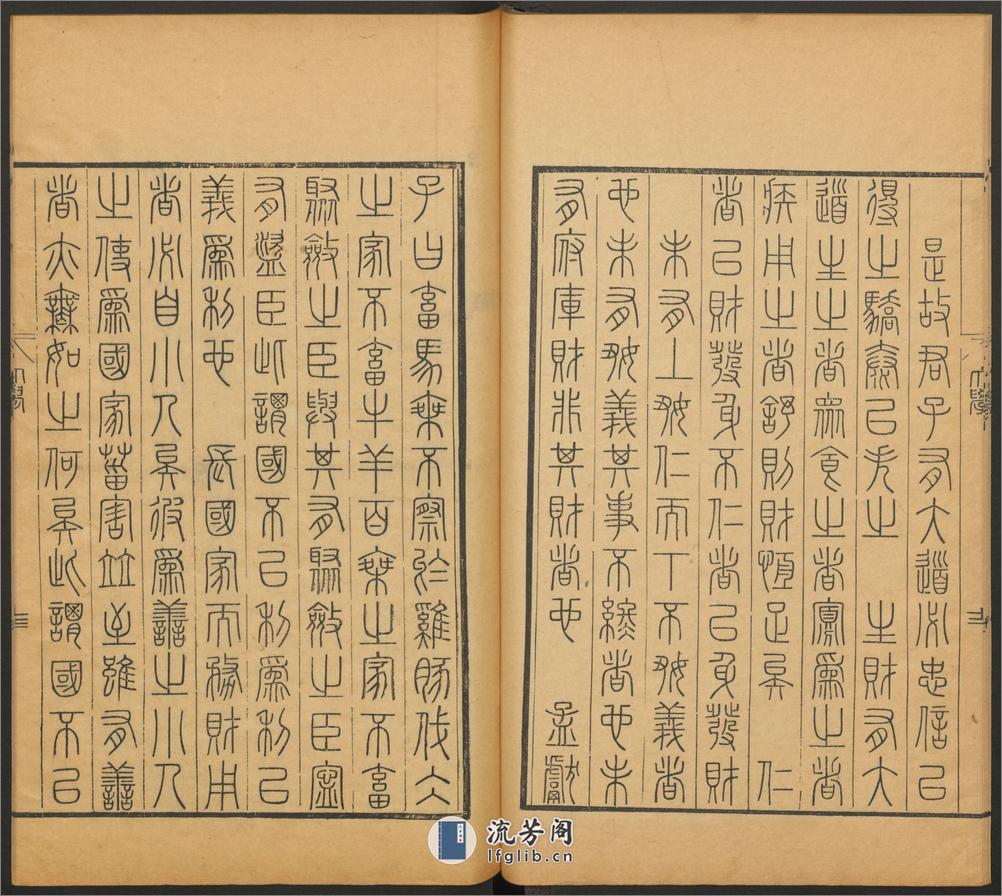 大學
是故君子有大道必忠信以
得之驕泰以失之　生財有大
道生之者衆食之者寡爲之者
疾用之者舒則財恆足矣　仁
者以財發身不仁者以身發財
未有上好仁而下不好義者
也未有好義其事不終者也未
有府庫財非其財者也　孟獻
子曰畜馬乘不察於雞豚伐仌
之家不畜牛羊百乘之家不畜
聚斂之臣與其有聚斂之臣寧
有盜臣此謂國不以利爲利以
義爲利也　長國家而務財用
者必自小人矣彼爲善之小人
之使爲國家菑害竝至雖有善
者亦無如之何矣此謂國不以
流芳阁
lfglib.cn